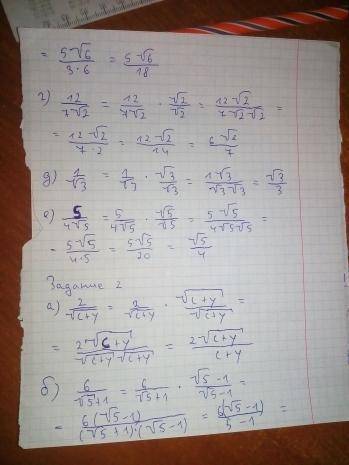 = 5√6 / 3·6 = 5√6 / 18
г) 12 / 7√2 = 12 / 7√2 · √2 / √2 = 12√2 / 7√2√2 =
= 12√2 / 7·2 = 12√2 / 14 = 6√2 / 7
д) 1 / √3 = 1 / √3 · √3 / √3 = 1√3 / √3√3 = √3 / 3
е) 5 / 4√5 = 5 / 4√5 · √5 / √5 = 5√5 / 4√5√5 =
= 5√5 / 4·5 = 5√5 / 20 = √5 / 4
Задание 2
а) 2 / √c+y = 2 / √c+y · √c+y / √c+y =
= 2√c+y / √c+y √c+y = 2√c+y / c+y
б) 6 / √5+1 = 6 / √5+1 · √5-1 / √5-1 =
= 6(√5-1) / (√5+1)·(√5-1) = 6(√5-1) / 5-1 =